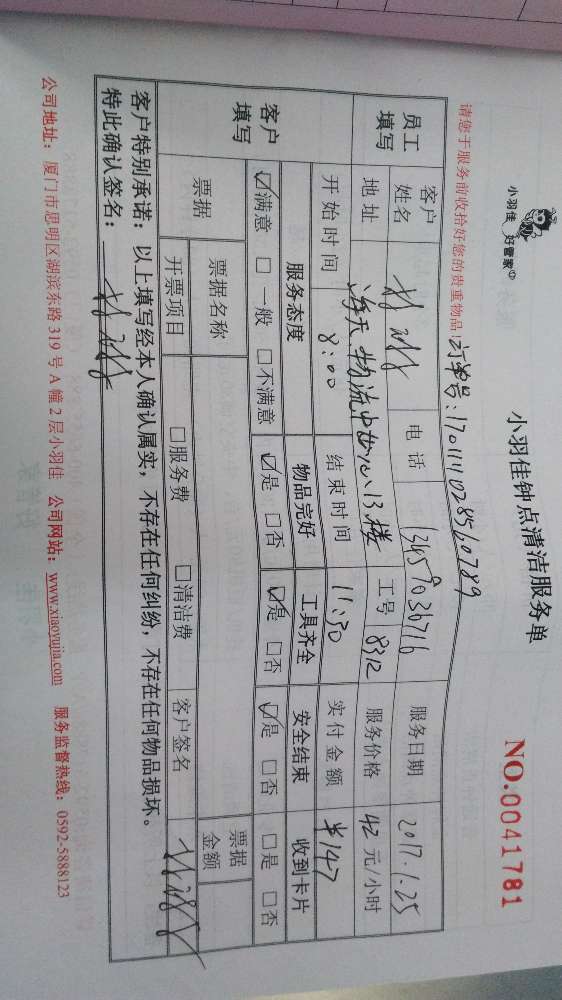 小羽佳 好管家
小羽佳钟点清洁服务单
NO:0041781
请您于服务前收拾好您的贵重物品! 订单号:
员工填写 客户姓名 电话 13459036716 服务日期 2017.1.25
地址 海天物流中心13楼 工号 8312 服务价格 42 元/小时
开始时间 8:00 结束时间 11:30 实付金额 ¥147
客户填写 服务态度 物品完好 工具齐全 安全结束 收到卡片
☑满意 □一般 □不满意 ☑是 □否 ☑是 □否 ☑是 □否 □是 □否
票据 票据名称 票据金额
开票项目 □服务费 □清洁费 客户签名
客户特别承诺:以上填写经本人确认属实,不存在任何纠纷,不存在任何物品损坏。
特此确认签名:
公司地址:厦门市思明区湖滨东路319号A幢2层小羽佳 公司网站:www.xiaoyujia.com 服务监督热线:0592-5888123